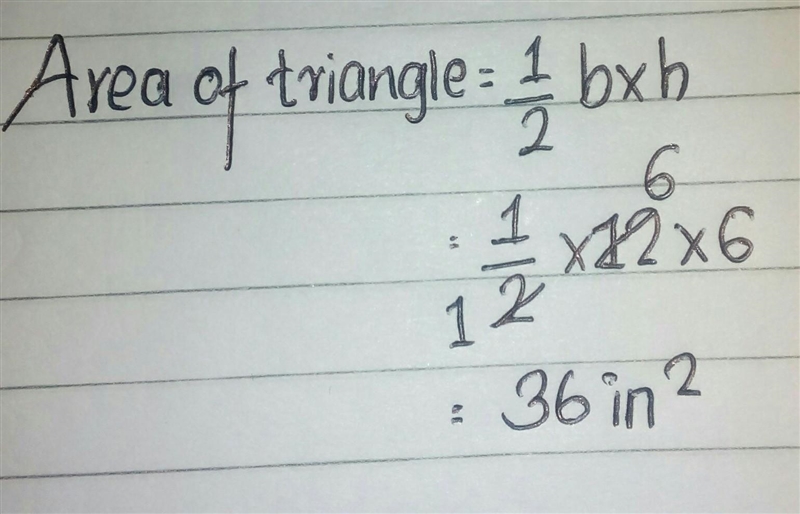 Area of triangle = 1/2 b×h
6
= 1/2 ×12×6
1
= 36 in²